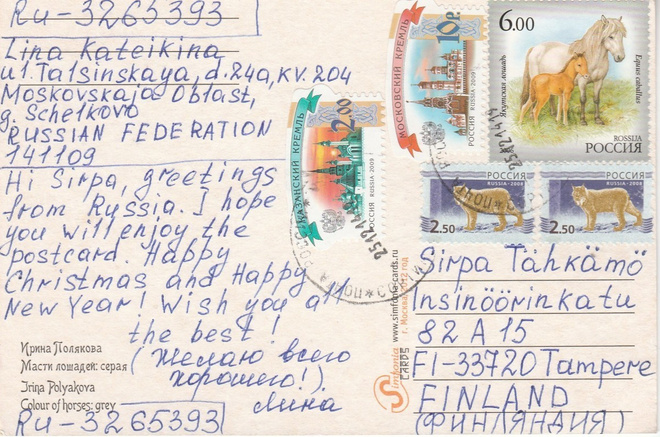 Ru-3265393
Lina Kateikina
ul. Talsinskaya, d.24a, kv.204
Moskovskaja Oblast,
g. Schelkovo
RUSSIAN FEDERATION
141109
Hi Sirpa, greetings
from Russia. I hope
you will enjoy the
postcard. Happy
Christmas and Happy
New Year! Wish you all
the best!
(Желаю всего
хорошего!)
Лина
Ирина Полякова
Масти лошадей: серая
Irina Polyakova
Colour of horses: grey
Ru-3265393
КАЗАНСКИЙ КРЕМЛЬ
2.00
РОССИЯ RUSSIA 2009
МОСКОВСКИЙ КРЕМЛЬ
10 Р.
РОССИЯ RUSSIA 2009
6.00
Якутская лошадь
Equus caballus
ROSSIJA
РОССИЯ
РОССИЯ
RUSSIA·2008
2.50
РОССИЯ
RUSSIA·2008
2.50
Simfonia
CARDS
www.simfonia-cards.ru
Sirpa Tähkämö
Insinöörinkatu
82 A 15
FI-33720 Tampere
FINLAND
(ФИНЛЯНДИЯ)